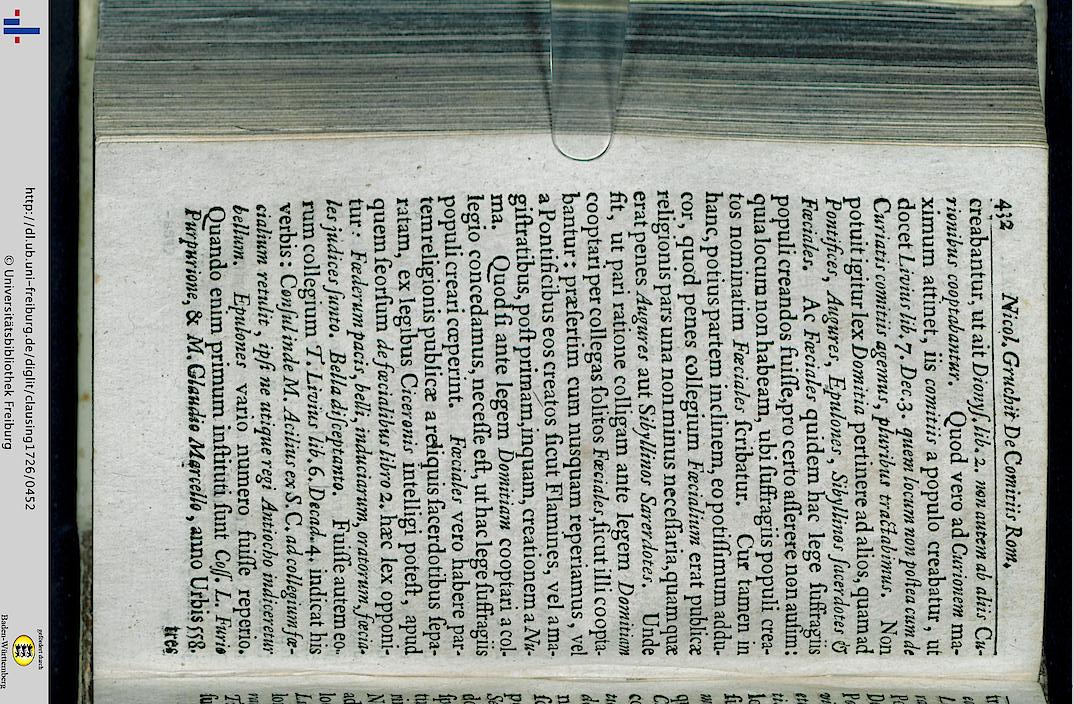 432 Nicol. Gruchii De Comitiis Rom.
creabantur, ut ait Dionys. lib. 2. non autem ab aliis Cu-
rionibus cooptabantur. Quod vero ad Curionem ma-
ximum attinet, iis comitiis a populo creabatur, ut
docet Livius lib. 7. Dec. 3. quem locum non postea cum de
Curiatis comitiis agemus, pluribus tractabimus. Non
potuit igitur lex Domitia pertinere ad alios, quam ad
Pontifices, Augures, Epulones, Sibyllinos sacerdotes &
Fœciales. Ac Fœciales quidem hac lege suffragiis
populi creandos fuisse, pro certo asserere non ausim:
quia locum non habeam, ubi suffragiis populi crea-
tos nominatim Fœciales scribatur. Cur tamen in
hanc, potius partem inclinem, eo potissimum addu-
cor, quod penes collegium Fœcialium erat publicæ
religionis pars una non minus necessaria, quam quæ
erat penes Augures aut Sibyllinos Sacerdotes. Unde
fit, ut pari ratione colligam ante legem Domitiam
cooptari per collegas solitos Fœciales, sicut illi coopta-
bantur: præsertim cum nusquam reperiamus, vel
a Pontificibus eos creatos sicut Flamines, vel a ma-
gistratibus, post primam, inquam, creationem a Nu-
ma. Quod si ante legem Domitiam cooptari a col-
legio concedamus, necesse est, ut hac lege suffragiis
populi creari cœperint. Fœciales vero habere par-
tem religionis publicæ a reliquis sacerdotibus sepa-
ratam, ex legibus Ciceronis intelligi potest, apud
quem seorsum de fœcialibus libro 2. hæc lex opponi-
tur: Fœderum pacis, belli, induciarum, oratorum, fœcia-
les judices sunto. Bella disceptanto. Fuisse autem eo-
rum collegium T. Livius lib. 6. Decad. 4. indicat his
verbis: Consul inde M. Acilius ex S. C. ad collegium fe-
cialium retulit, ipsi ne utique regi Antiocho indiceretur
bellum. Epulones vario numero fuisse reperio.
Quando enim primum instituti sunt Coss. L. Furio
Purpurione, & M. Claudio Marcello, anno Urbis 558.
tres
http://dl.ub.uni-freiburg.de/diglit/clausing1726/0452
© Universitätsbibliothek Freiburg
gefördert durch
Baden-Württemberg